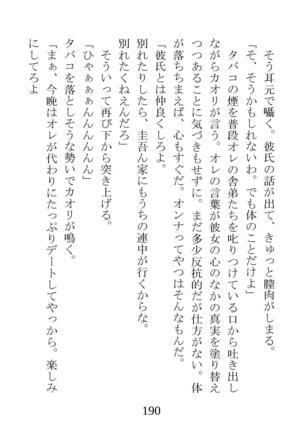 そう耳元で囁く。彼氏の話が出て、きゅっと膣肉がしまる。
「そ、そうかもしれないわ。でも体のことだけよ」
タバコの煙を普段オレの舎弟たちを叱りつけている口から吐き出し
ながらカオリが言う。オレの言葉が彼女の心のなかの真実を塗り替え
つつあることに気づきもせずに。まだ多少反抗的だが仕方がない。体
が落ちちまえば、心もすぐだ。オンナってやつはそんなもんだ。
「彼氏とは仲良くしろよ。
別れたりしたら、圭吾ん家にもうちの連中が行くからな。
別れたくねえんだろ」
そういって再び下から突き上げる。
「ひゃぁぁぁんんんんん」
タバコを落としそうな勢いでカオリが鳴く。
「まぁ、今晩はオレが代わりにたっぷりデートしてやっから。楽しみ
にしてろよ
190